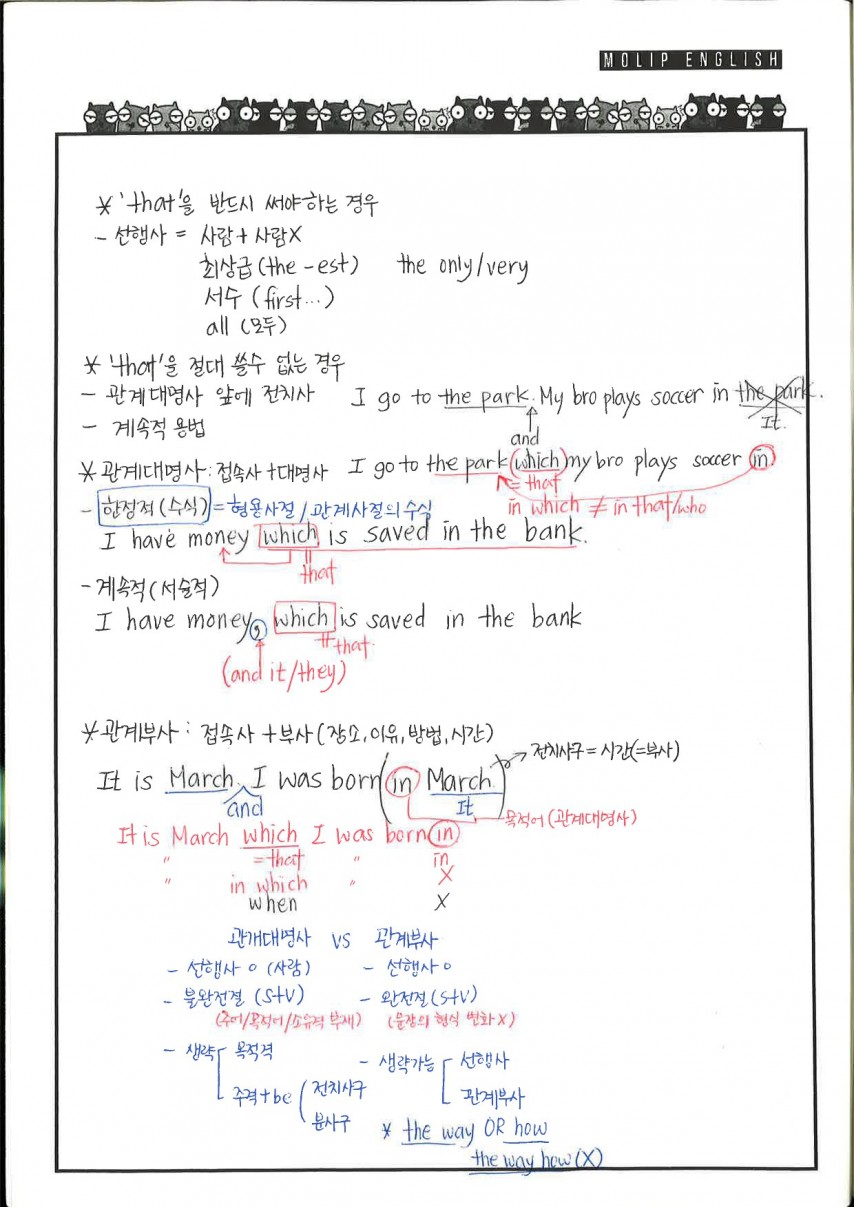 MOLIP ENGLISH
* 'that'을 반드시 써야하는 경우
- 선행사 = 사람 + 사람X
최상급 (the -est) the only/very
서수 (first...)
all (모두)
* 'that'을 절대 쓸수 없는 경우
- 관계대명사 앞에 전치사 I go to the park. My bro plays soccer in the park.
It.
- 계속적 용법
and
* 관계대명사: 접속사+대명사 I go to the park which my bro plays soccer in
= that
- 한정적 (수식) = 형용사절 / 관계사절의 수식 in which ≠ in that/who
I have money which is saved in the bank.
= that
- 계속적 (서술적)
I have money, which is saved in the bank
≠ that
(and it/they)
* 관계부사: 접속사 + 부사 (장소, 이유, 방법, 시간)
→ 전치사구 = 시간(=부사)
It is March. I was born (in March.)
and It
목적어 (관계대명사)
It is March which I was born in
" = that " in
" in which " X
when X
관개대명사 vs 관계부사
- 선행사 o (사람) - 선행사 o
- 불완전절 (S+V) - 완전절 (S+V)
(주어/목적어/소유격 부재) (문장의 형식 변화 X)
- 생략 목적격 - 생략가능 선행사
주격+be 전치사구 관계부사
분사구
* the way OR how
the way how (X)